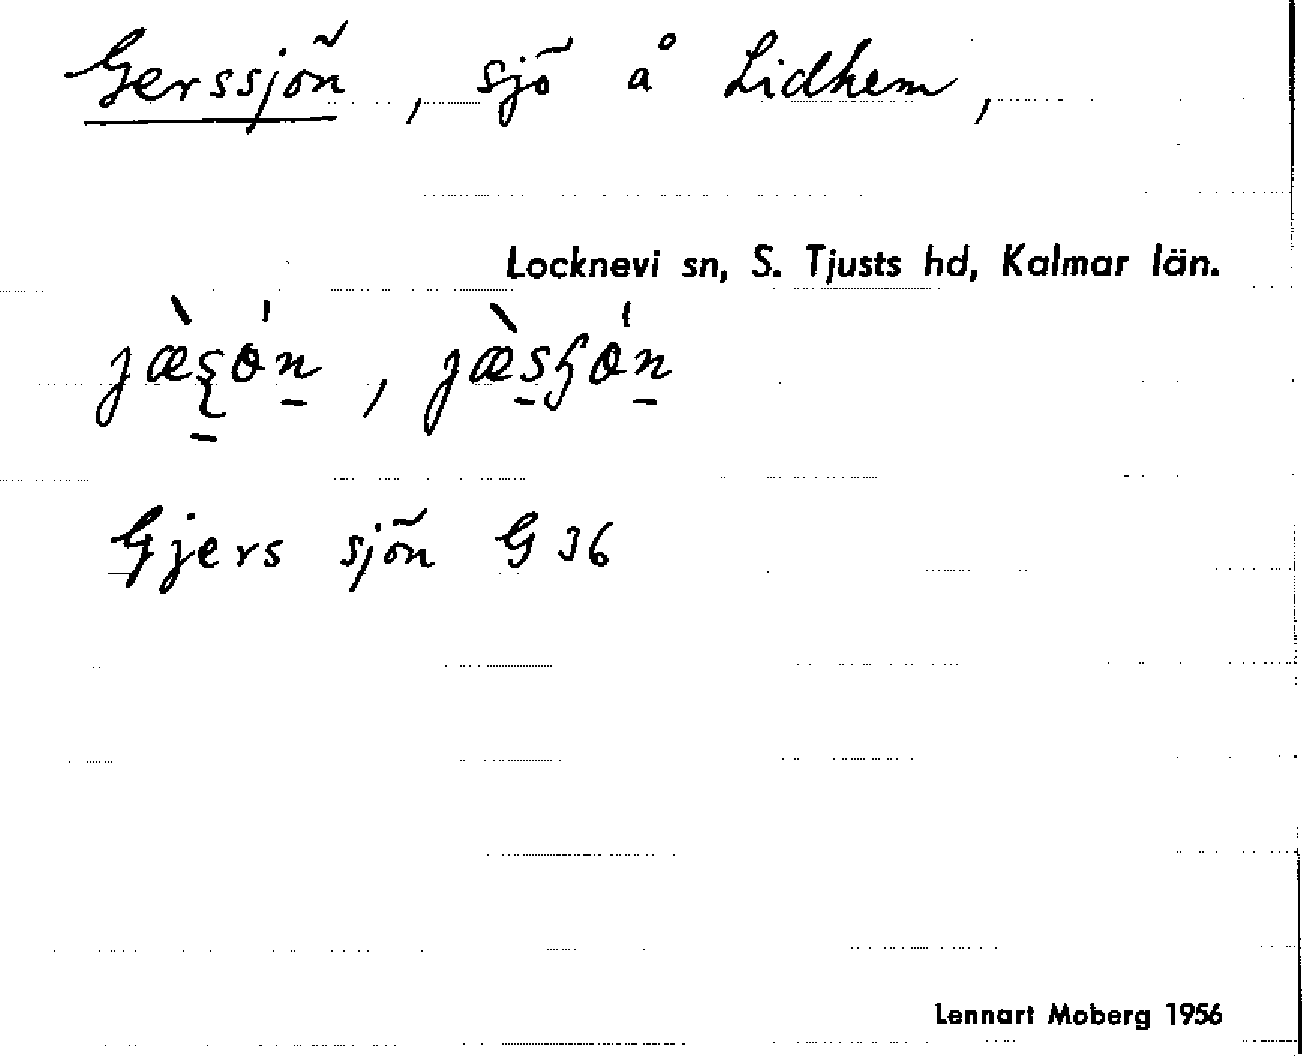 Gerssjön, sjö å Lidhem,
Locknevi sn, S. Tjusts hd, Kalmar län.
Gjers sjön G 36
Lennart Moberg 1956